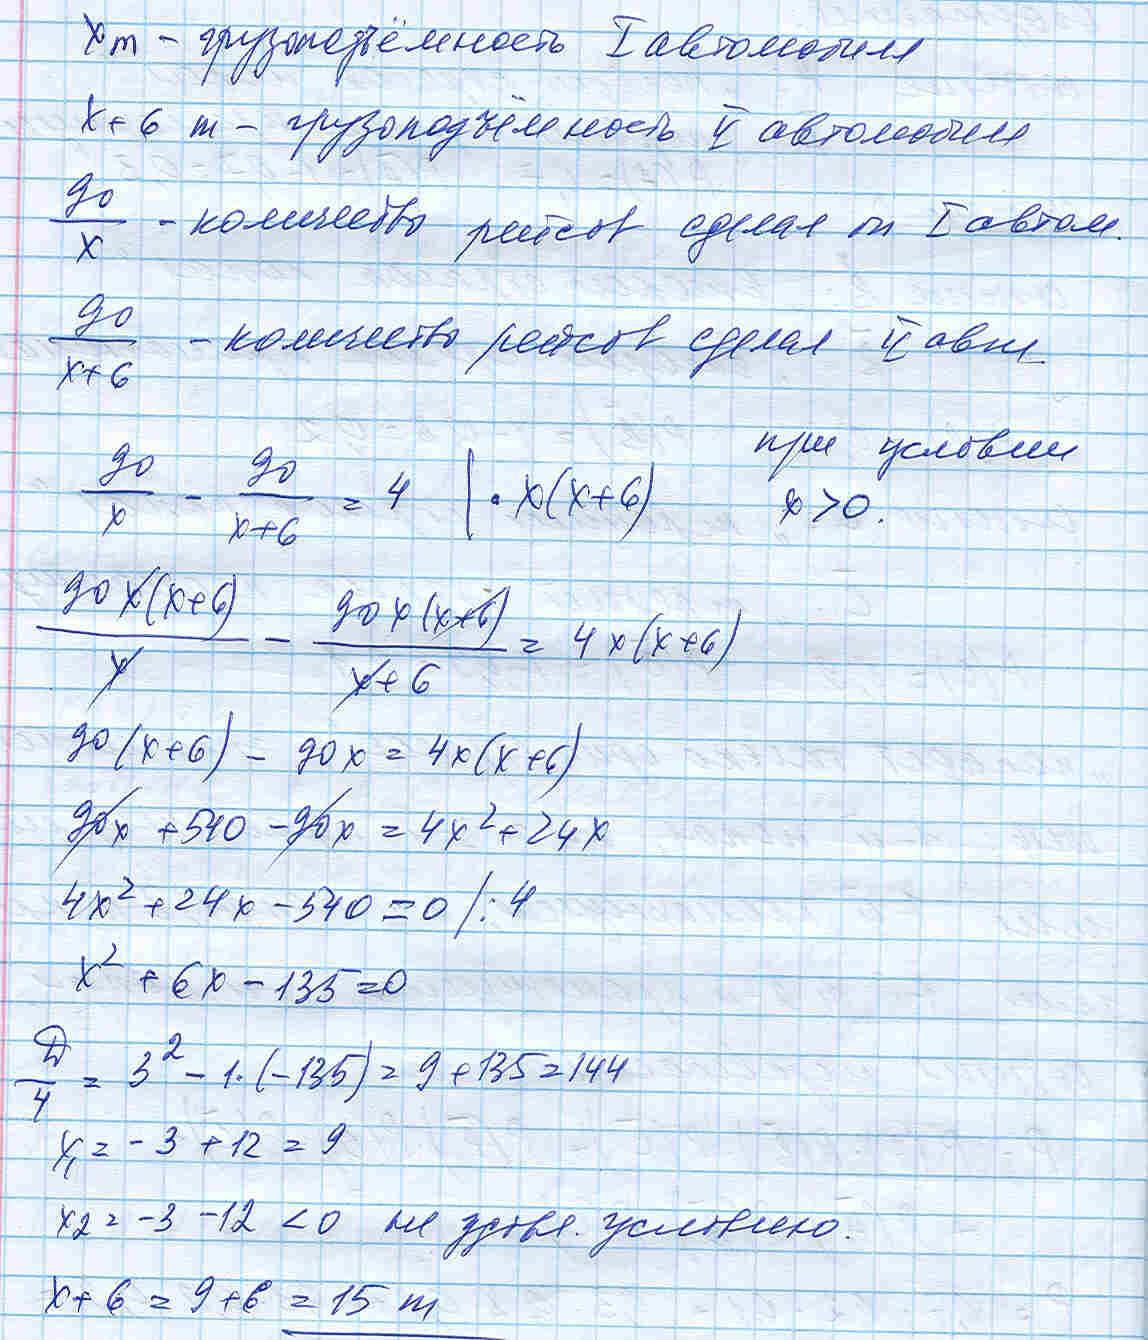 x т – грузоподъёмность I автомобиля
x+6 т – грузоподъёмность II автомобиля
90/x – количество рейсов сделал I автом.
90/(x+6) – количество рейсов сделал II авт
90/x - 90/(x+6) = 4 | · x(x+6) при условии x>0.
90x(x+6)/x - 90x(x+6)/(x+6) = 4x(x+6)
90(x+6) - 90x = 4x(x+6)
90x + 540 - 90x = 4x² + 24x
4x² + 24x - 540 = 0 /:4
x² + 6x - 135 = 0
D/4 = 3² - 1·(-135) = 9 + 135 = 144
x₁ = -3 + 12 = 9
x₂ = -3 - 12 < 0 не удовл. условию.
x + 6 = 9 + 6 = 15 т